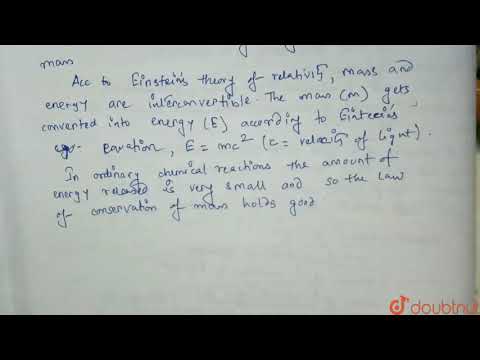 mass
Acc to Einstein's theory of relativity, mass and
energy are interconvertible. The mass (m) gets
converted into energy (E) according to Einstein's
eqn- Equation, E = mc² (c = velocity of light).
In ordinary chemical reactions the amount of
energy released is very small and so the law
of conservation of mass holds good
doubtnut